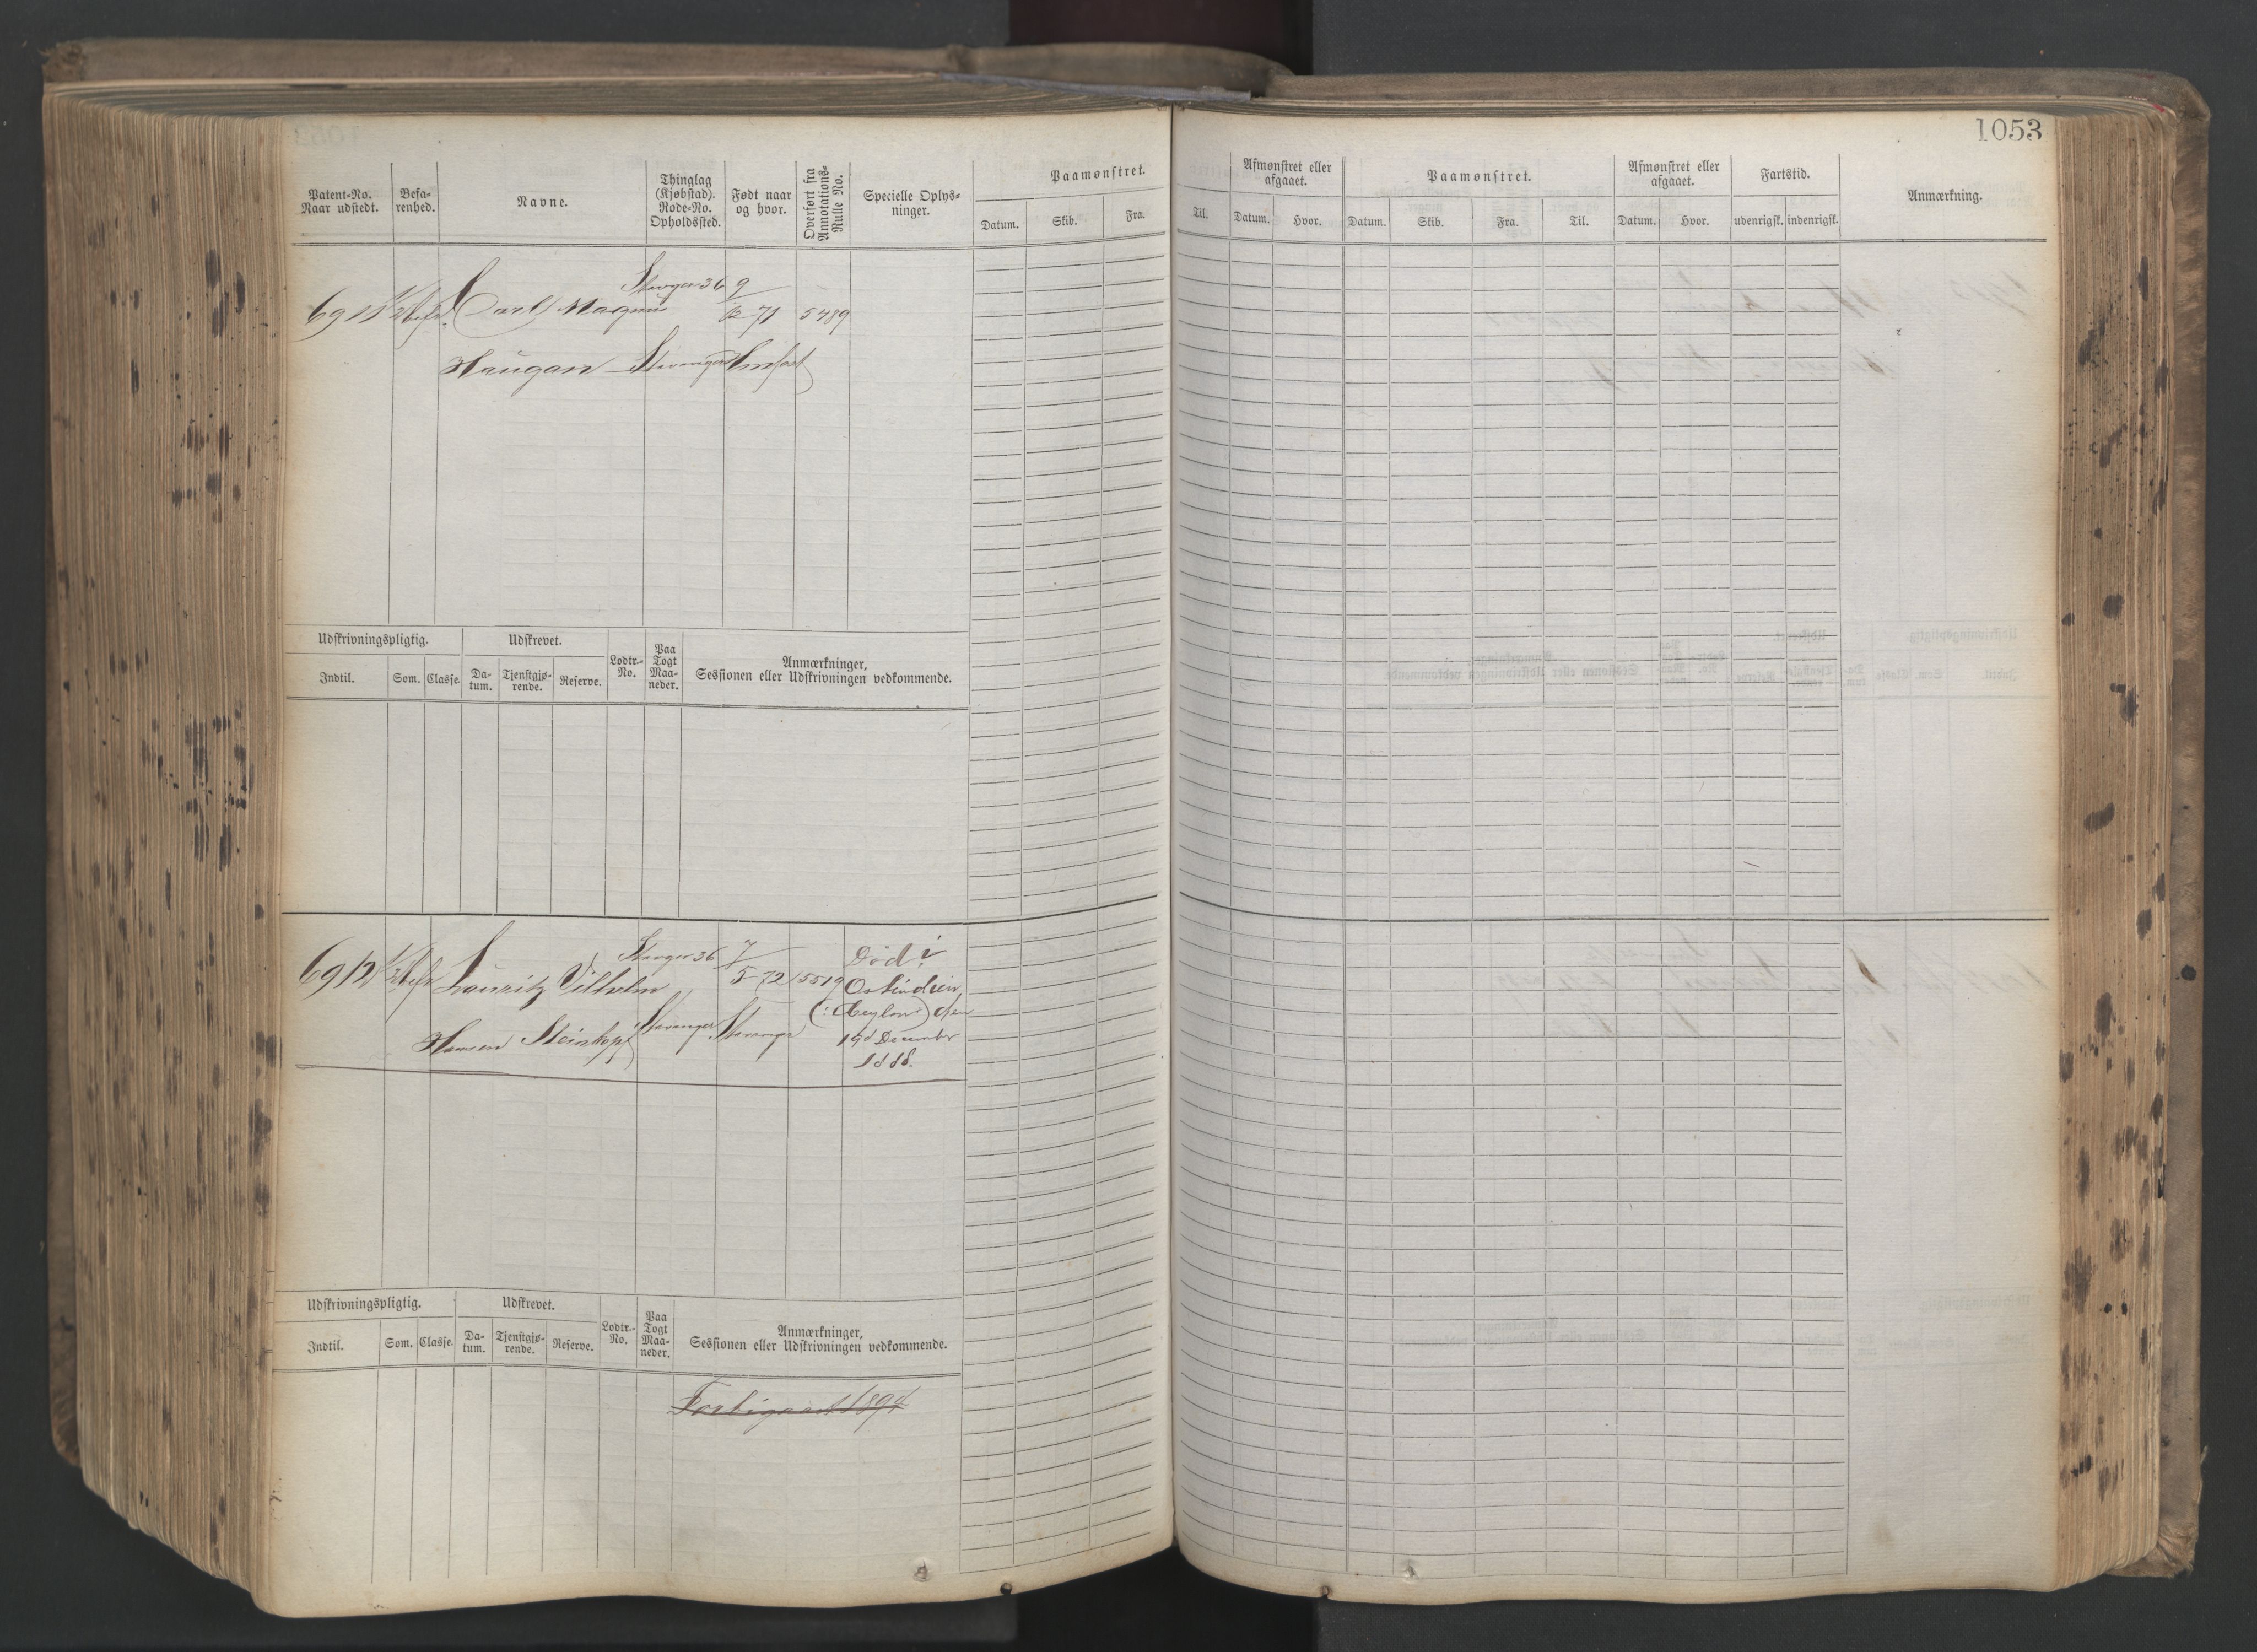 1053
Patent-No. Naar udstedt. Befa-renhed. Navne. Thinglag (Kjøbstad). Rode-No. Opholdssted. Født naar og hvor. Overført fra Annotations-Rulle No. Specielle Oplys-ninger. Paamønstret. Datum. Skib. Fra.
Til. Afmønstret eller afgaaet. Datum. Hvor. Paamønstret. Datum. Skib. Fra. Til. Afmønstret eller afgaaet. Datum. Hvor. Fartstid. udenrigsk. indenrigsk. Anmærkning.
Stavger 36 9
6911 Carl Magnus 12 71 5489
Haugan Stavanger
Udskrivningspligtig. Udskrevet. Lodtr.-No. Paa Togt Maa-neder. Anmærkninger, Sessionen eller Udskrivningen vedkommende.
Indtil. Som. Classe. Da-tum. Tjenstgjø-rende. Reserve.
Stavger 36 7 Död i
6912 Lauritz Vilhelm 5 72 5519 Ostindien
(: Ceylon:) den
Hansen Steinkopf Stavanger Stavanger 19d December
1888.
Udskrivningspligtig. Udskrevet. Lodtr.-No. Paa Togt Maa-neder. Anmærkninger, Sessionen eller Udskrivningen vedkommende.
Indtil. Som. Classe. Da-tum. Tjenstgjø-rende. Reserve.
Forbigaaet 1894